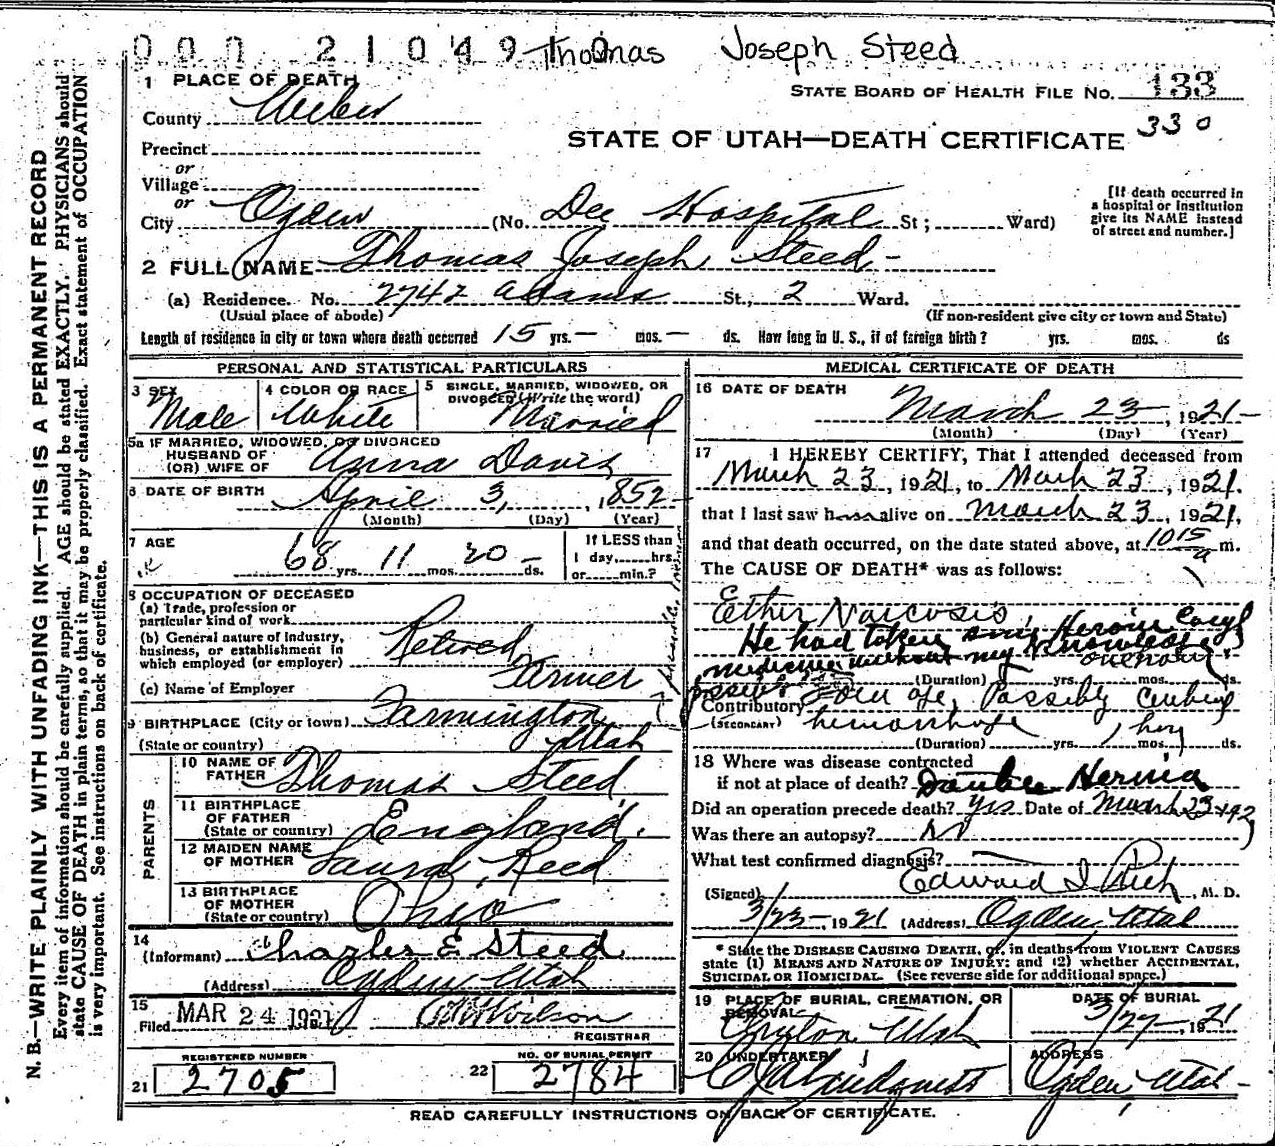 000 21049 Thomas Joseph Steed
1 PLACE OF DEATH
STATE BOARD OF HEALTH FILE NO. 133
County Weber
330
STATE OF UTAH—DEATH CERTIFICATE
Precinct
or
Village
or
City Ogden (No. Dee Hospital St; Ward)
[If death occurred in a hospital or institution give its NAME instead of street and number.]
2 FULL NAME Thomas Joseph Steed
(a) Residence. No. 2742 Adams St., 2 Ward.
(Usual place of abode) (If non-resident give city or town and State)
Length of residence in city or town where death occurred 15 yrs. — mos. — ds. How long in U. S., if of foreign birth? yrs. mos. ds
PERSONAL AND STATISTICAL PARTICULARS
3 SEX Male
4 COLOR OR RACE White
5 SINGLE, MARRIED, WIDOWED, OR DIVORCED (Write the word) Married
5a IF MARRIED, WIDOWED, OR DIVORCED
HUSBAND OF
(OR) WIFE OF Anna Davis
6 DATE OF BIRTH April 3, 1852
(Month) (Day) (Year)
7 AGE 68 yrs. 11 mos. 20 ds.
If LESS than
1 day, hrs.
or min.?
8 OCCUPATION OF DECEASED
(a) Trade, profession or
particular kind of work
(b) General nature of industry,
business, or establishment in
which employed (or employer)
Retired Farmer
(c) Name of Employer
9 BIRTHPLACE (City or town) Farmington
(State or country) Utah
PARENTS
10 NAME OF FATHER Thomas Steed
11 BIRTHPLACE OF FATHER
(State or country) England.
12 MAIDEN NAME OF MOTHER Laura Reed
13 BIRTHPLACE OF MOTHER
(State or country) Ohio
14
(Informant) Charles E Steed
(Address) Ogden Utah
15
Filed MAR 24 1921 Wilson
REGISTRAR
REGISTERED NUMBER
21 2705
NO. OF BURIAL PERMIT
22 2784
MEDICAL CERTIFICATE OF DEATH
16 DATE OF DEATH
March 23, 1921
(Month) (Day) (Year)
17 I HEREBY CERTIFY, That I attended deceased from
March 23, 1921, to March 23, 1921.
that I last saw h alive on March 23, 1921,
and that death occurred, on the date stated above, at 10 15 a m.
The CAUSE OF DEATH* was as follows:
Ether Narcosis,
He had taken some Heroin cough
medicine without my knowledge
one hour
(Duration) yrs. mos. ds.
Contributory From age, Possibly
(SECONDARY) hemorrhage 1 hour
(Duration) yrs. mos. ds.
18 Where was disease contracted
if not at place of death? Double Hernia
Did an operation precede death? Yes Date of March 23 1921
Was there an autopsy? No
What test confirmed diagnosis?
(Signed) Edward I Rich, M. D.
3/23-, 1921 (Address) Ogden Utah
* State the DISEASE CAUSING DEATH, or, in deaths from VIOLENT CAUSES
state (1) MEANS AND NATURE OF INJURY; and (2) whether ACCIDENTAL,
SUICIDAL OR HOMICIDAL. (See reverse side for additional space.)
19 PLACE OF BURIAL, CREMATION, OR
REMOVAL
Utah
DATE OF BURIAL
3/27-, 1921
20 UNDERTAKER
Lindquist
ADDRESS
Ogden, Utah
READ CAREFULLY INSTRUCTIONS ON BACK OF CERTIFICATE.
N. B.—WRITE PLAINLY WITH UNFADING INK—THIS IS A PERMANENT RECORD
Every item of information should be carefully supplied. AGE should be stated EXACTLY. PHYSICIANS should
state CAUSE OF DEATH in plain terms, so that it may be properly classified. Exact statement of OCCUPATION
is very important. See instructions on back of certificate.